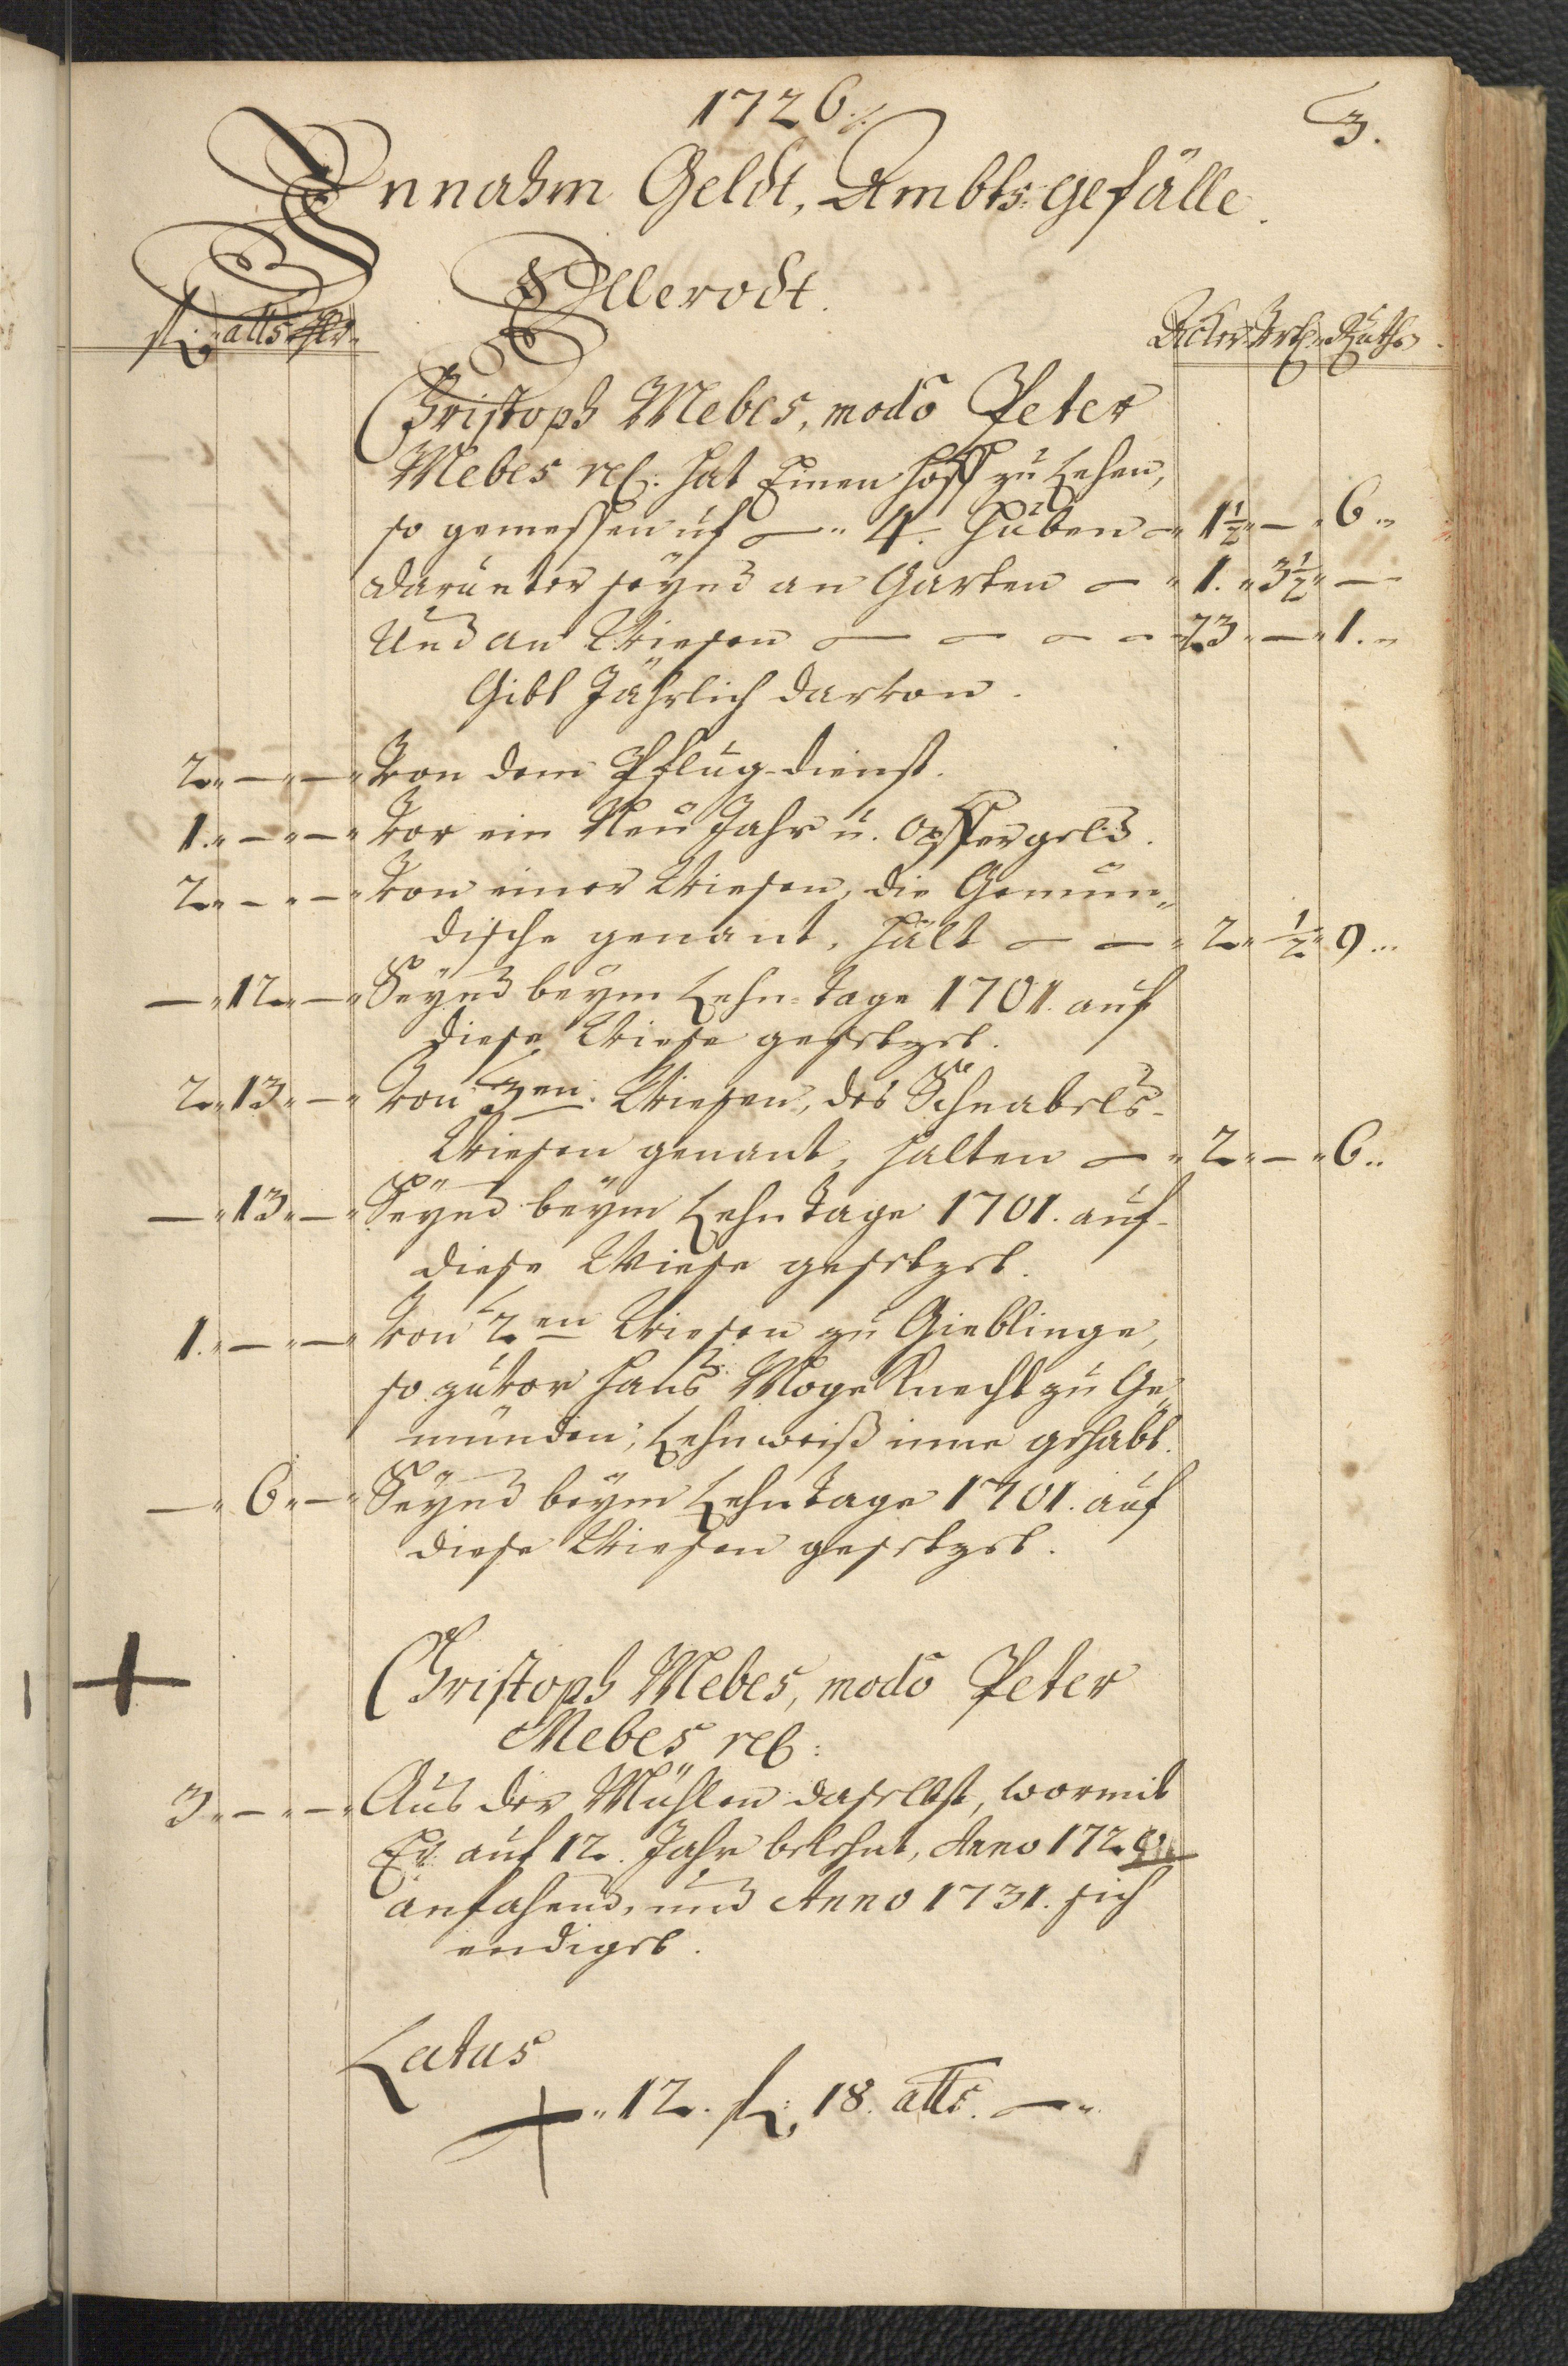 1726.
3.
Einnahm Geldt, Ambts-Gefälle.
Ellerodt.
fl. albs hlr.
Acker Vrtl. Ruth.
Christoph Mebes, modò Peter
Mebes rel. hat Einen Hoff zu Lehen,
so gemessen uf — 4. Huben — 1½ — 6.
darunter seynd an Garten — 1. 3½ —
Und an Wiesen — — — — 23 — 1.
Gibt Jährlich darvon.
2. — — Von dem Pflug-dienst.
1. — — Vor ein Neu Jahr u. Opffergeld.
2. — — Von einer Wiesen, die Gemün-
dische genant, hält — — 2. ½ 9.
— 12. — Seynd beym Lehn-tage 1701. auf
diese Wiese gesetzet.
2. 13. — Von 3en. Wiesen, des Schnabels-
Wiesen genant, halten — 2. — 6.
— 13. — Seynd beym Lehn Tage 1701. auf
diese Wiese gesetzet.
1. — — Von 2en Wiesen zu Gieblinge,
so zuvor Hanß Moge Knecht zu Ge-
münden, Lehnweiß inne gehabt.
— 6. — Seynd beym Lehn Tage 1701. auf
diese Wiesen gesetzet.
Christoph Mebes, modò Peter
Mebes rel:
3. — — Aus der Mühlen daselbst, wormit
Er auf 12. Jahr belehnt, Anno 1720
anfahend, und Anno 1731. sich
endiget.
Latus
12. fl. 18. albs. —